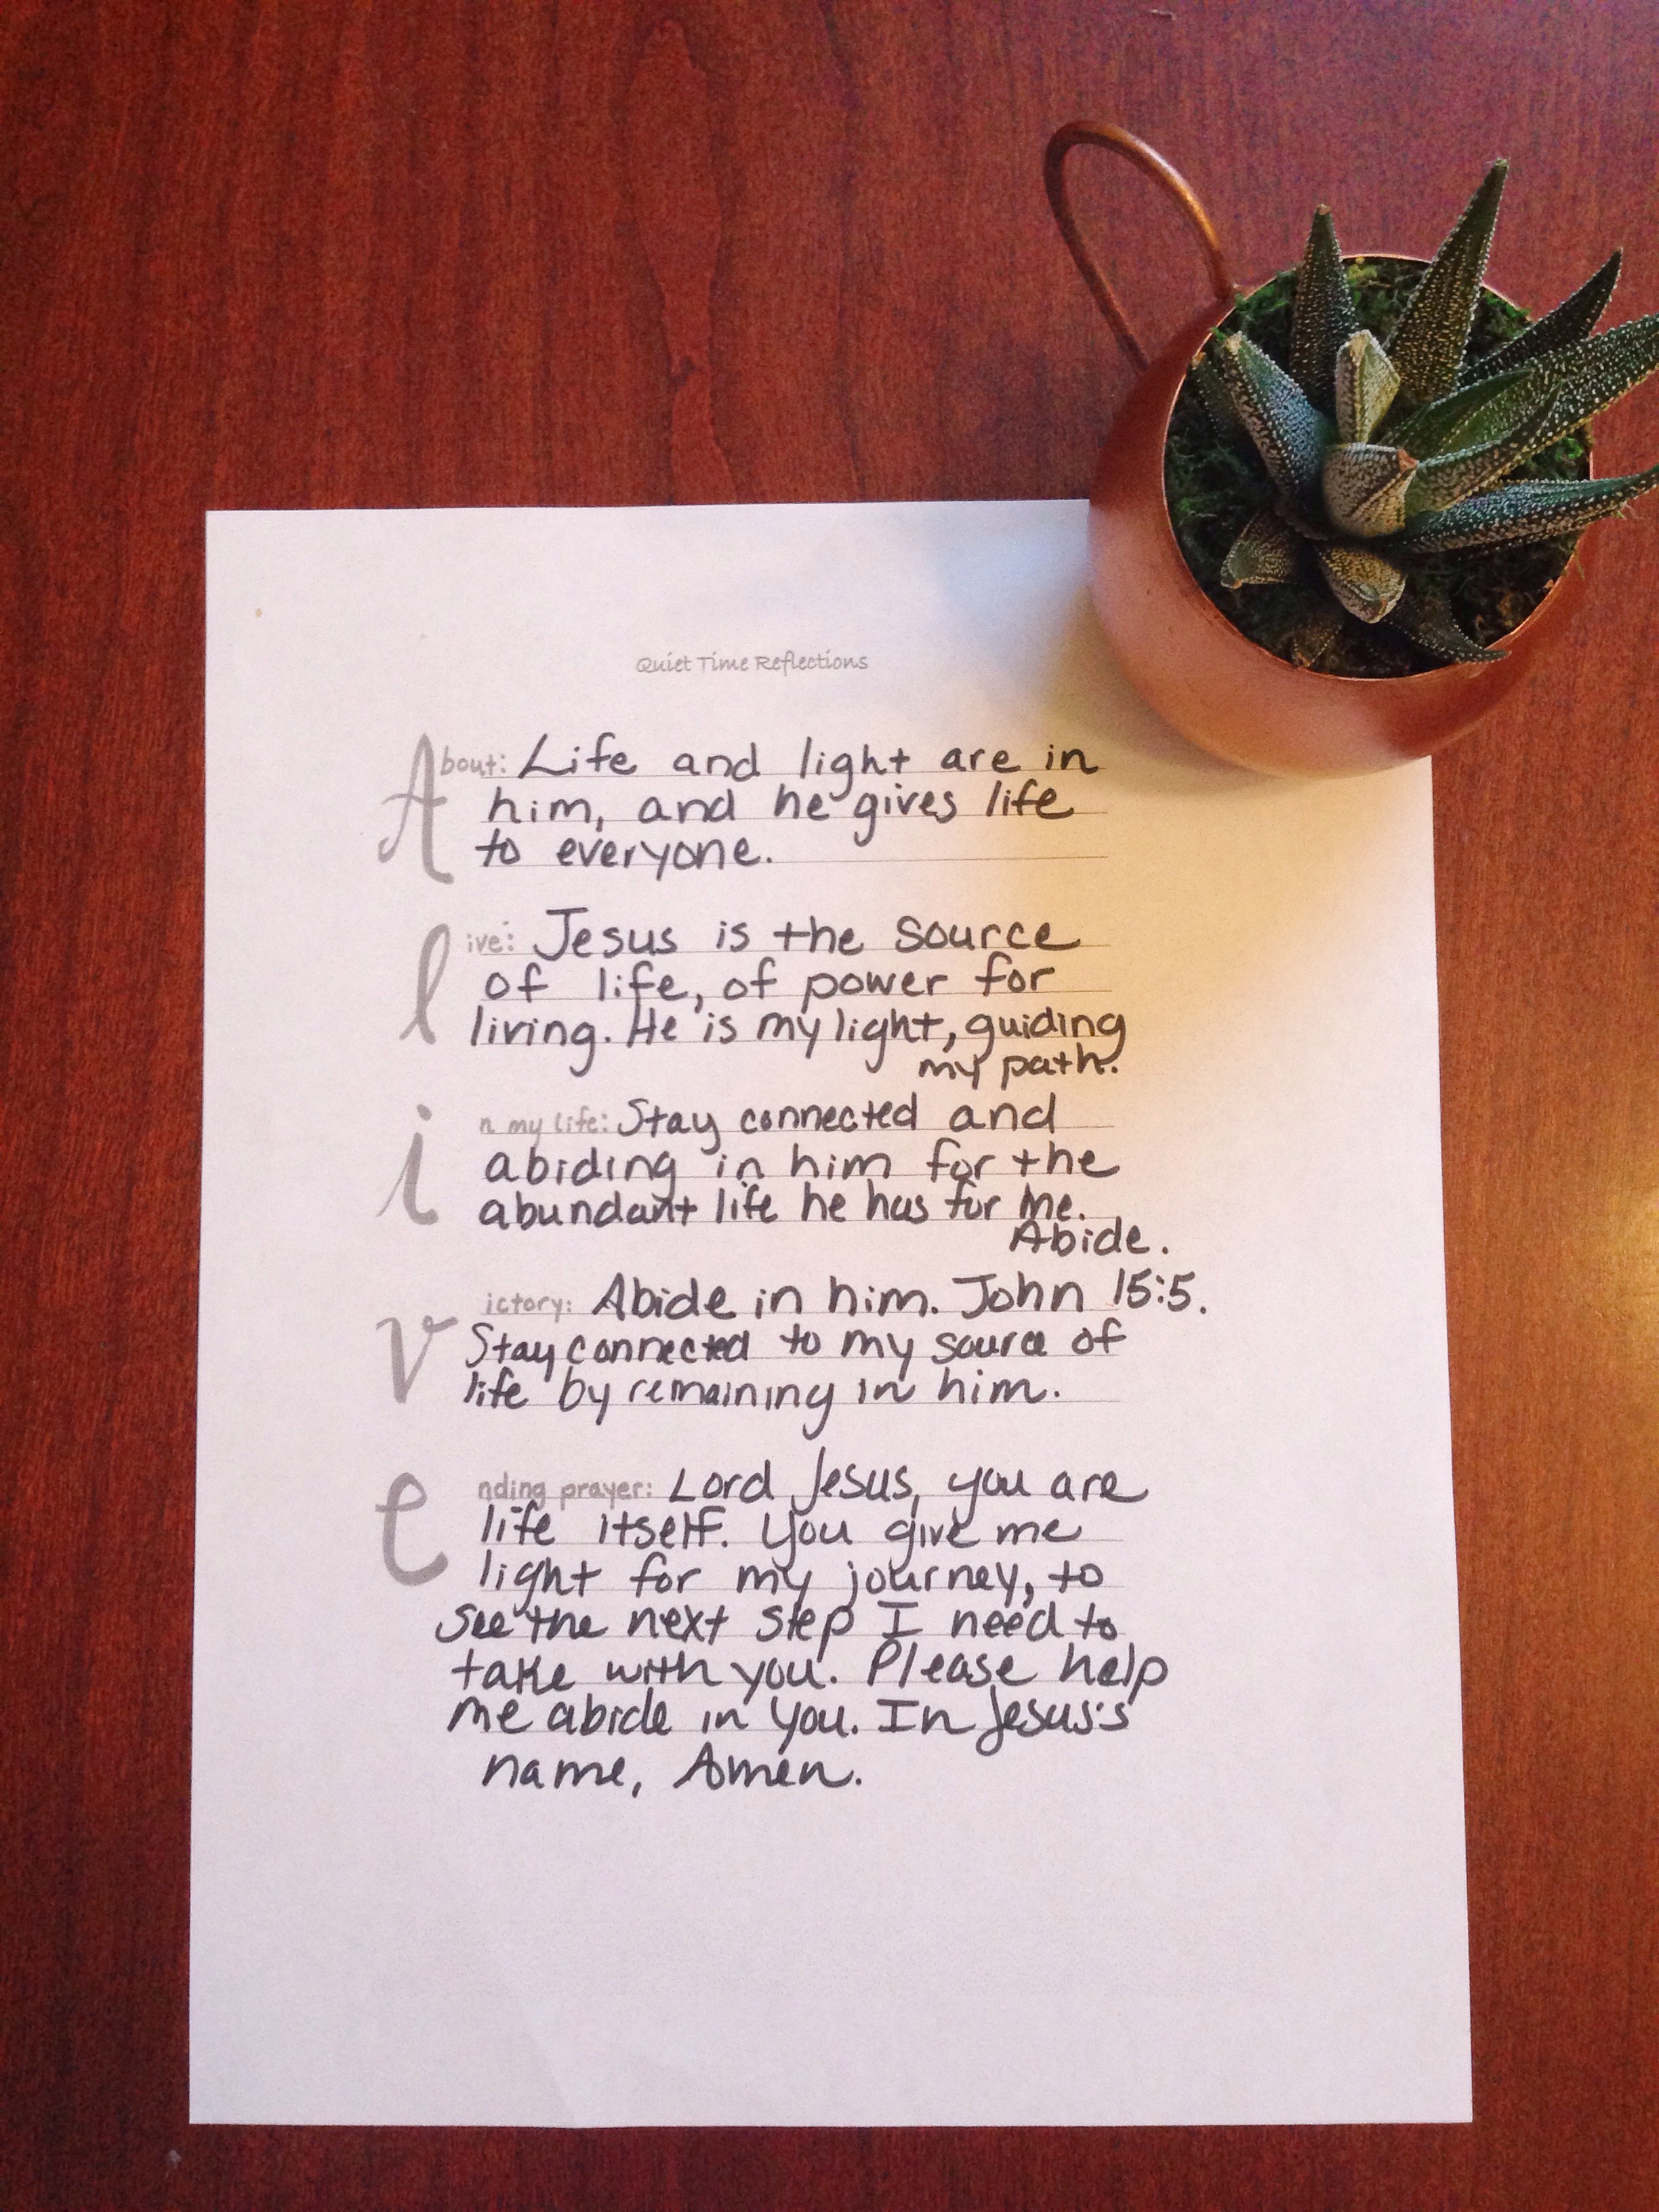 Quiet Time Reflections
About: Life and light are in
him, and he gives life
to everyone.
live: Jesus is the source
of life, of power for
living. He is my light, guiding
my path.
in my life: Stay connected and
abiding in him for the
abundant life he has for me.
Abide.
victory: Abide in him. John 15:5.
Stay connected to my source of
life by remaining in him.
ending prayer: Lord Jesus, you are
life itself. You give me
light for my journey, to
see the next step I need to
take with you. Please help
me abide in you. In Jesus's
name, Amen.